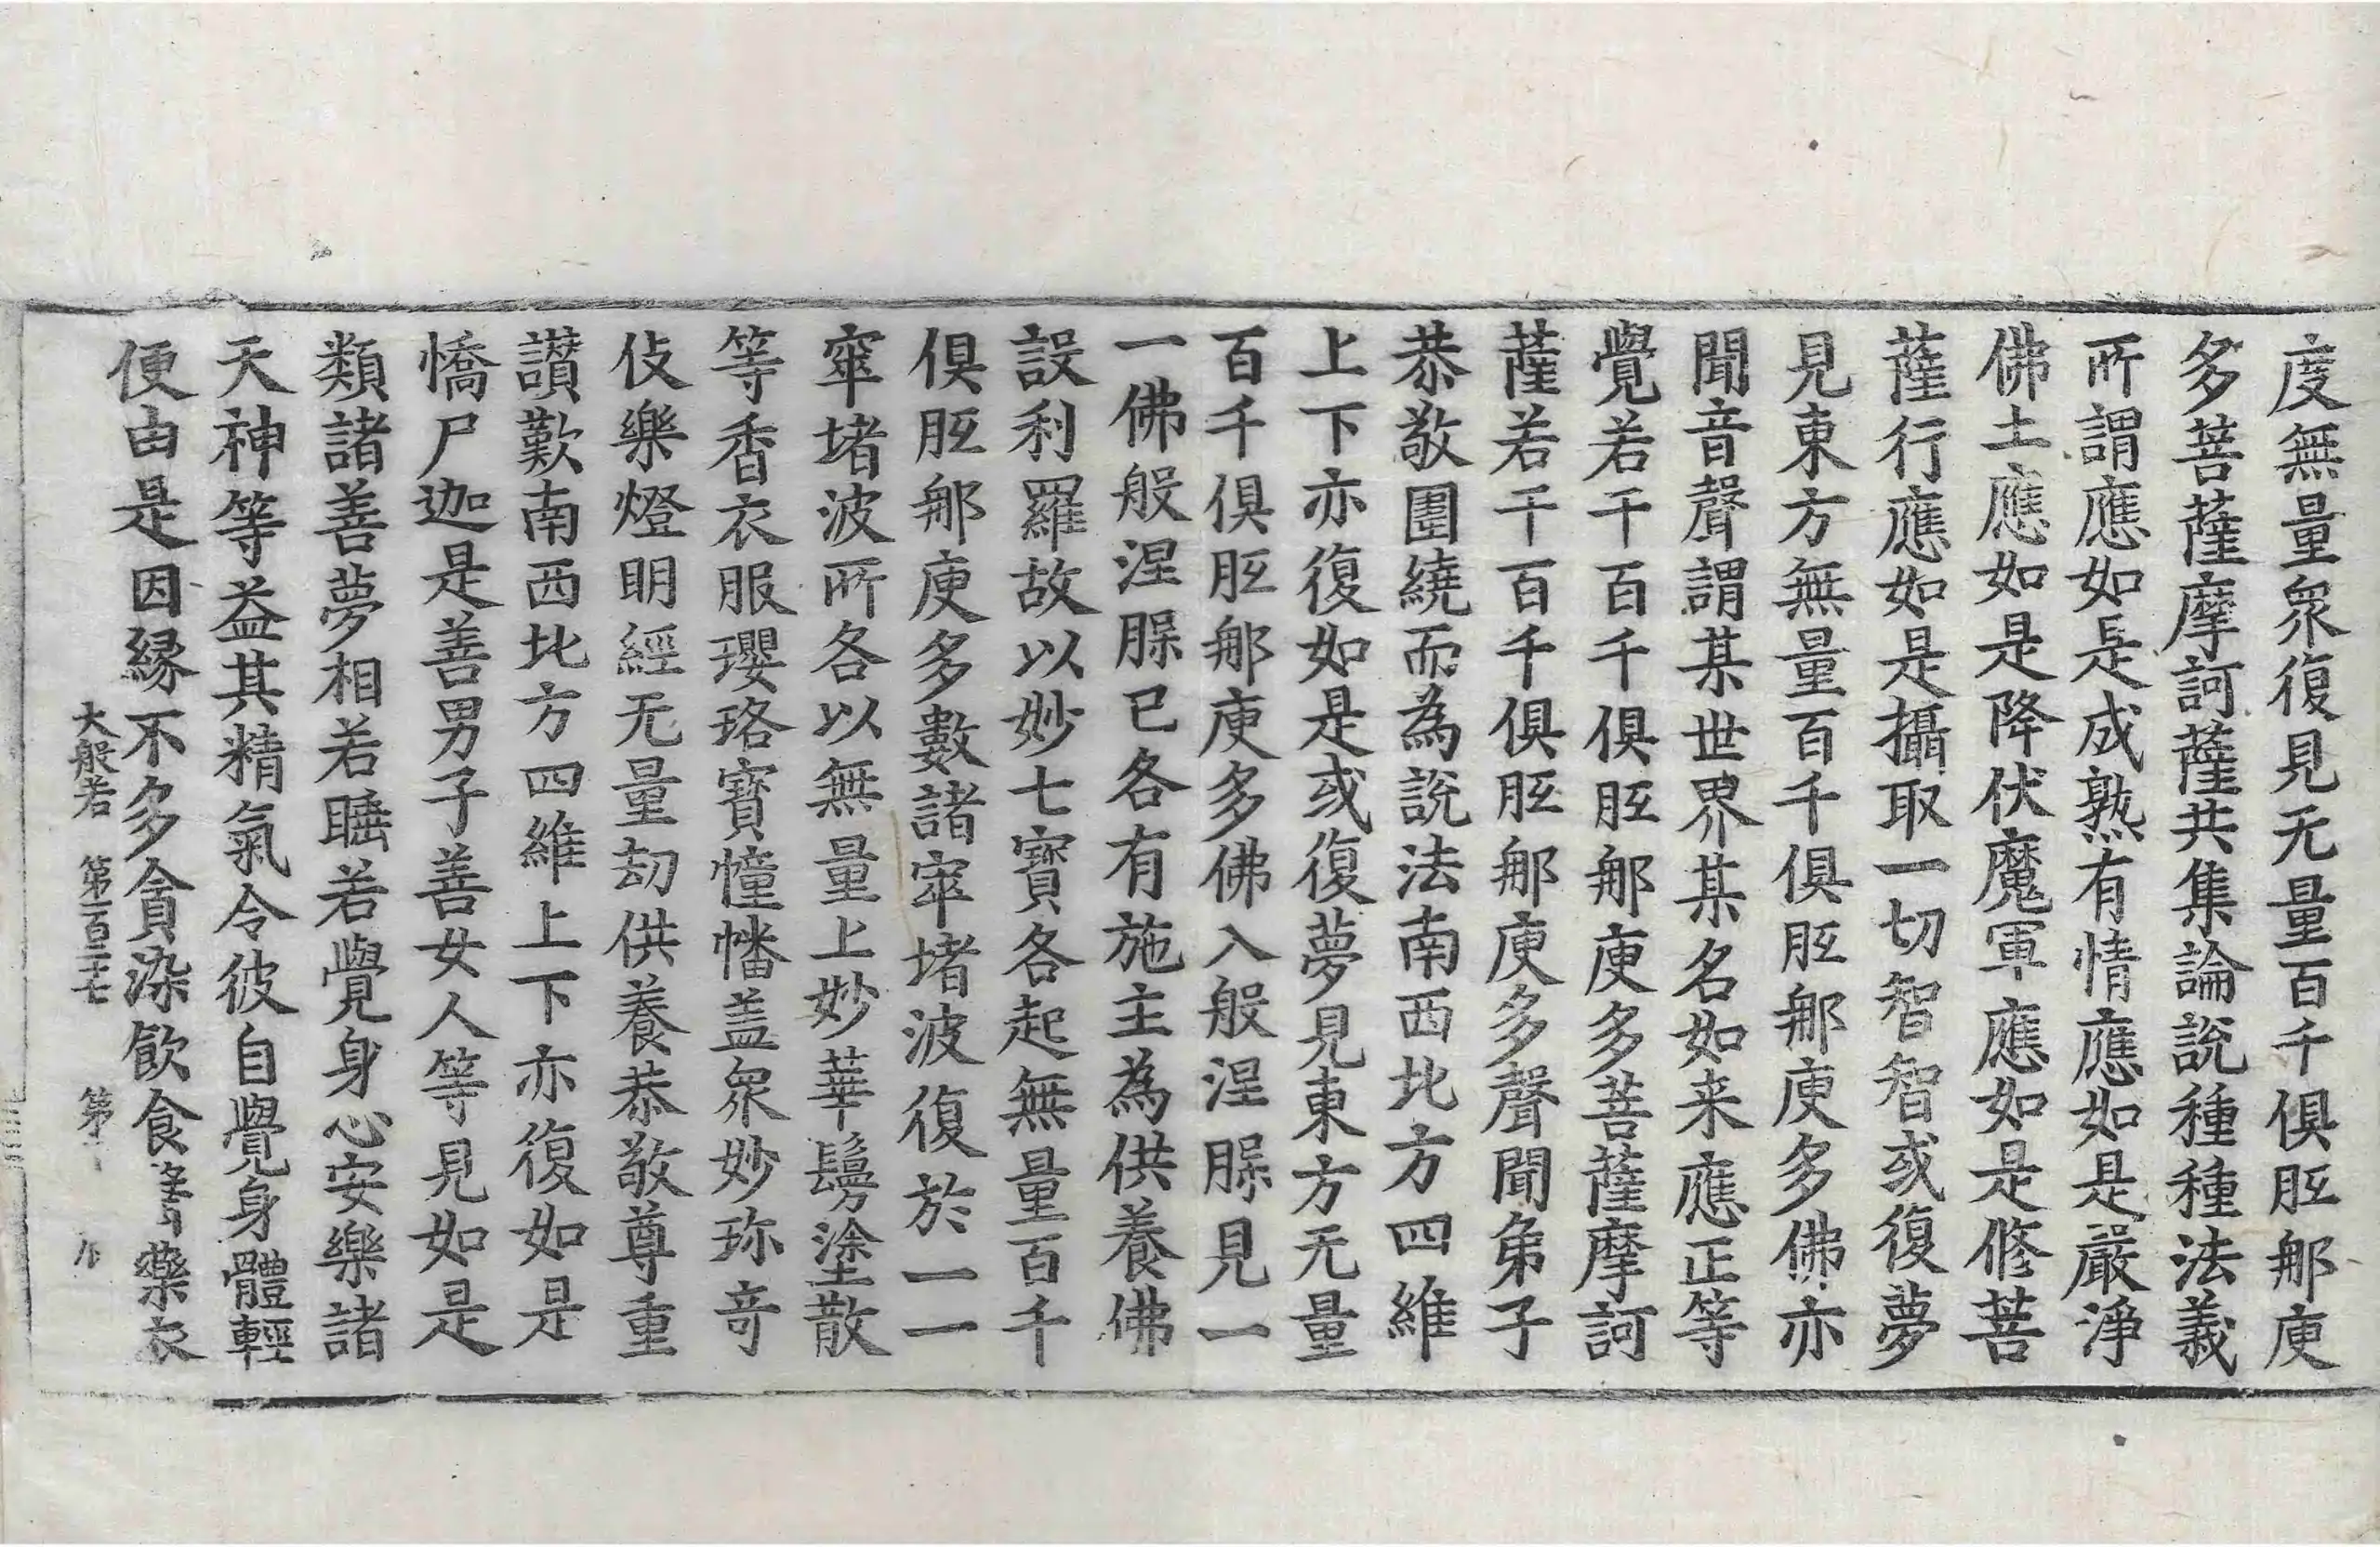 度無量衆復見无量百千俱胝那庾
多菩薩摩訶薩共集論說種種法義
所謂應如是成熟有情應如是嚴淨
佛土應如是降伏魔軍應如是修菩
薩行應如是攝取一切智智或復夢
見東方無量百千俱胝那庾多佛亦
聞音聲謂某世界某名如来應正等
覺若干百千俱胝那庾多菩薩摩訶
薩若干百千俱胝那庾多聲聞弟子
恭敬圍繞而為說法南西北方四維
上下亦復如是或復夢見東方无量
百千俱胝那庾多佛入般涅脲見一
一佛般涅脲已各有施主為供養佛
設利羅故以妙七寶各起無量百千
俱胝那庾多數諸窣堵波復於一一
窣堵波所各以無量上妙華鬘塗散
等香衣服瓔珞寶憧幡盖衆妙珎奇
伎樂燈明經无量劫供養恭敬尊重
讃歎南西北方四維上下亦復如是
憍尸迦是善男子善女人等見如是
類諸善夢相若睡若覺身心安樂諸
天神等益其精氣令彼自覺身體輕
便由是因緣不多貪染飲食藥衣
大般若 第一百二十七 第